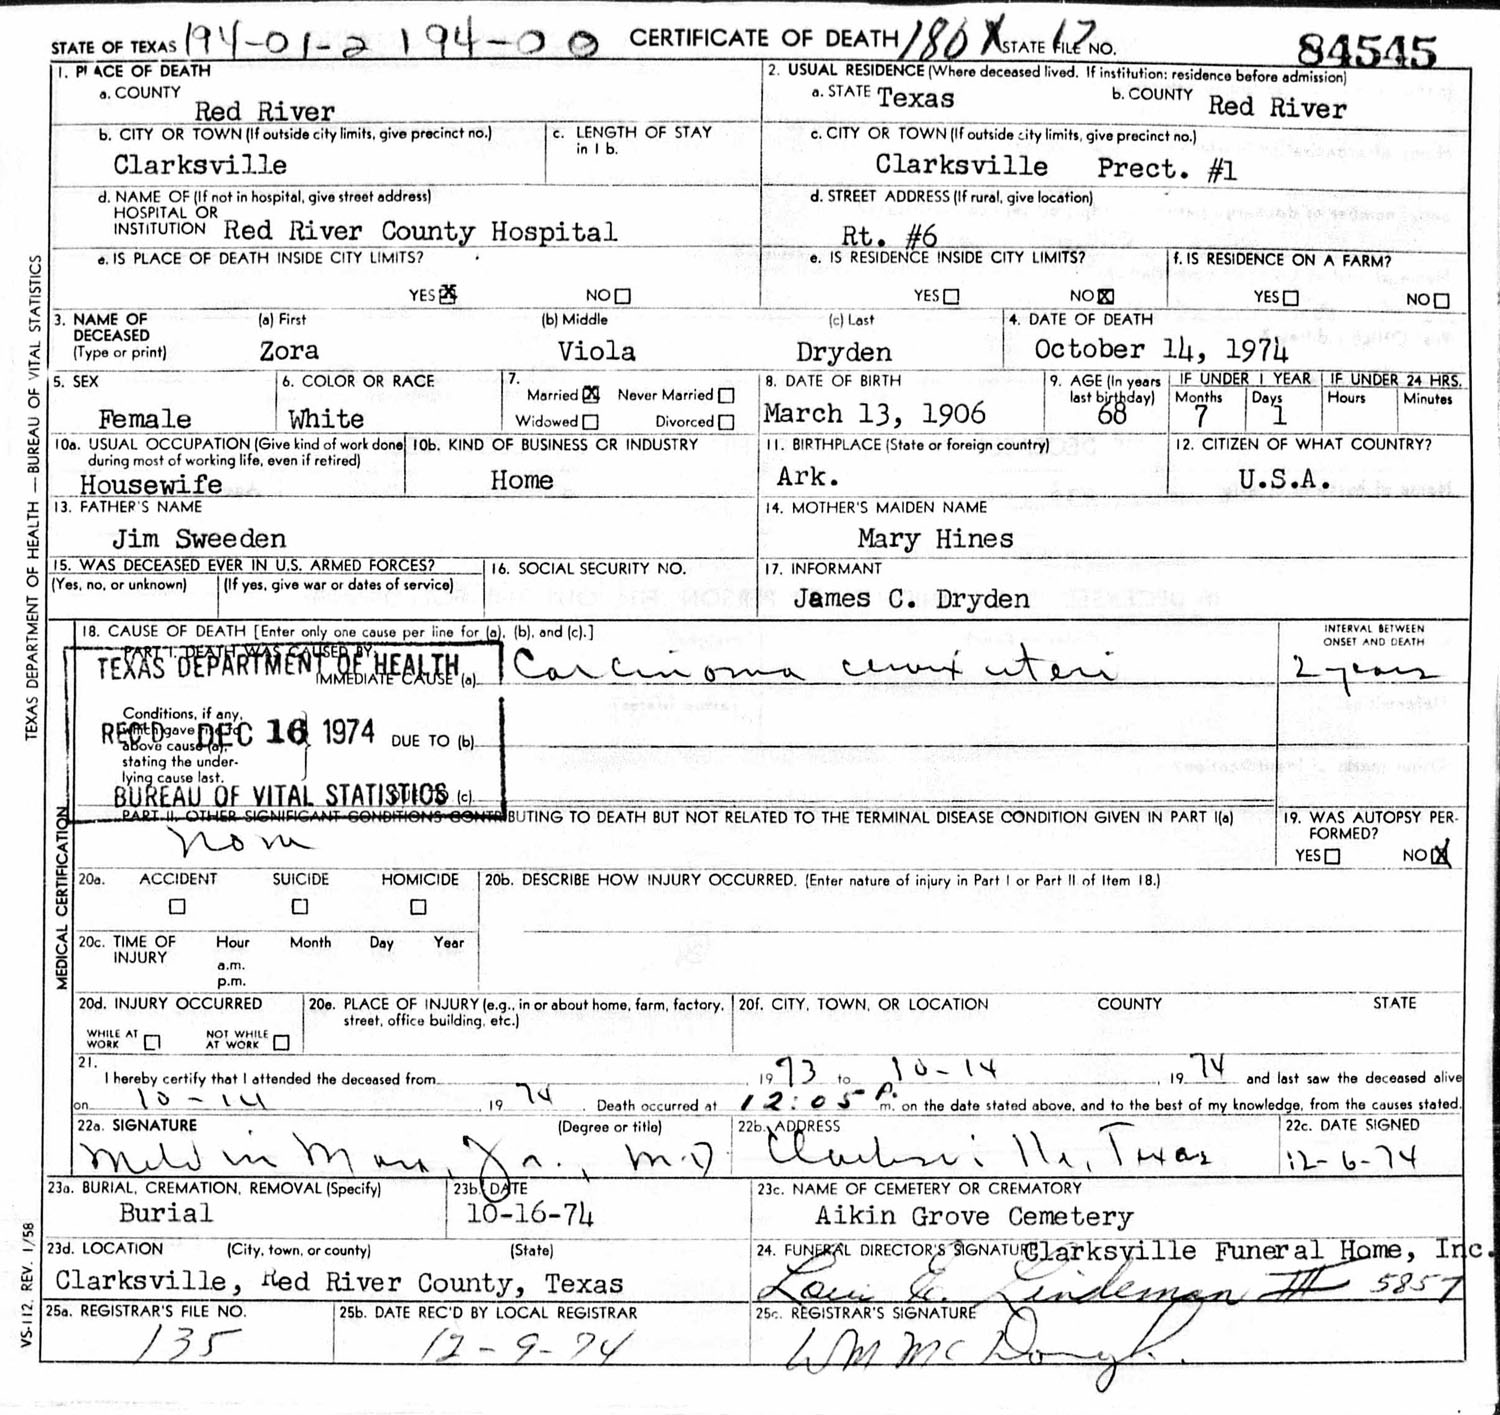 STATE OF TEXAS 194-01-2 194-00 CERTIFICATE OF DEATH 180X STATE FILE NO. 17 84545
1. PLACE OF DEATH
a. COUNTY
Red River
2. USUAL RESIDENCE (Where deceased lived. If institution: residence before admission)
a. STATE Texas b. COUNTY Red River
b. CITY OR TOWN (If outside city limits, give precinct no.)
Clarksville
c. LENGTH OF STAY
in 1 b.
c. CITY OR TOWN (If outside city limits, give precinct no.)
Clarksville Prect. #1
d. NAME OF (If not in hospital, give street address)
HOSPITAL OR
INSTITUTION Red River County Hospital
d. STREET ADDRESS (If rural, give location)
Rt. #6
e. IS PLACE OF DEATH INSIDE CITY LIMITS?
YES X NO
e. IS RESIDENCE INSIDE CITY LIMITS?
YES NO X
f. IS RESIDENCE ON A FARM?
YES NO
3. NAME OF
DECEASED
(Type or print)
(a) First (b) Middle (c) Last
Zora Viola Dryden
4. DATE OF DEATH
October 14, 1974
5. SEX
Female
6. COLOR OR RACE
White
7.
Married X Never Married
Widowed Divorced
8. DATE OF BIRTH
March 13, 1906
9. AGE (In years
last birthday)
68
IF UNDER 1 YEAR IF UNDER 24 HRS.
Months Days Hours Minutes
7 1
10a. USUAL OCCUPATION (Give kind of work done
during most of working life, even if retired)
Housewife
10b. KIND OF BUSINESS OR INDUSTRY
Home
11. BIRTHPLACE (State or foreign country)
Ark.
12. CITIZEN OF WHAT COUNTRY?
U.S.A.
13. FATHER'S NAME
Jim Sweeden
14. MOTHER'S MAIDEN NAME
Mary Hines
15. WAS DECEASED EVER IN U.S. ARMED FORCES?
(Yes, no, or unknown) (If yes, give war or dates of service)
16. SOCIAL SECURITY NO.
17. INFORMANT
James C. Dryden
18. CAUSE OF DEATH [Enter only one cause per line for (a), (b), and (c).]
INTERVAL BETWEEN
ONSET AND DEATH
PART I. DEATH WAS CAUSED BY:
IMMEDIATE CAUSE (a) Carcinoma cervix uteri 2 years
TEXAS DEPARTMENT OF HEALTH
REC'D DEC 16 1974
BUREAU OF VITAL STATISTICS
Conditions, if any,
which gave rise to
above cause (a),
stating the under-
lying cause last.
DUE TO (b)
DUE TO (c)
PART II. OTHER SIGNIFICANT CONDITIONS CONTRIBUTING TO DEATH BUT NOT RELATED TO THE TERMINAL DISEASE CONDITION GIVEN IN PART I(a)
None
19. WAS AUTOPSY PER-
FORMED?
YES NO X
20a. ACCIDENT SUICIDE HOMICIDE
20b. DESCRIBE HOW INJURY OCCURRED. (Enter nature of injury in Part I or Part II of Item 18.)
20c. TIME OF
INJURY
Hour Month Day Year
a.m.
p.m.
20d. INJURY OCCURRED
WHILE AT
WORK
NOT WHILE
AT WORK
20e. PLACE OF INJURY (e.g., in or about home, farm, factory,
street, office building, etc.)
20f. CITY, TOWN, OR LOCATION COUNTY STATE
21.
I hereby certify that I attended the deceased from 1973 to 10-14, 1974 and last saw the deceased alive
on 10-14, 1974. Death occurred at 12:05 P. m. on the date stated above, and to the best of my knowledge, from the causes stated.
22a. SIGNATURE (Degree or title)
Marx, Jr., M.D
22b. ADDRESS
Clarksville, Texas
22c. DATE SIGNED
12-6-74
23a. BURIAL, CREMATION, REMOVAL (Specify)
Burial
23b. DATE
10-16-74
23c. NAME OF CEMETERY OR CREMATORY
Aikin Grove Cemetery
23d. LOCATION (City, town, or county) (State)
Clarksville, Red River County, Texas
24. FUNERAL DIRECTOR'S SIGNATURE Clarksville Funeral Home, Inc.
Louis E. Lindeman III 5857
25a. REGISTRAR'S FILE NO.
135
25b. DATE REC'D BY LOCAL REGISTRAR
12-9-74
25c. REGISTRAR'S SIGNATURE
WM McDonagh.
TEXAS DEPARTMENT OF HEALTH — BUREAU OF VITAL STATISTICS
MEDICAL CERTIFICATION
VS-112. REV. 1/58